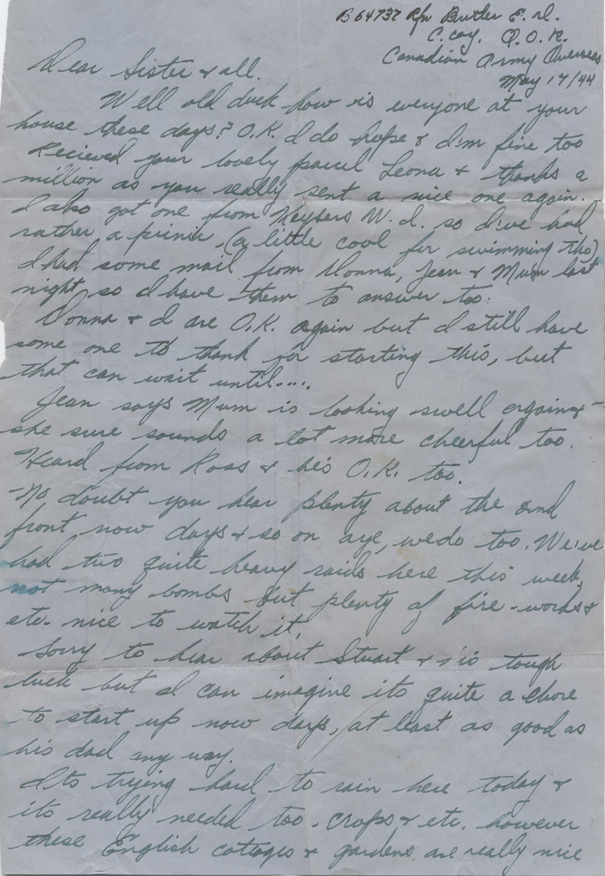 B64737 Rfn Butler E. W.
C. coy. Q. O. R.
Canadian Army Overseas
May 17/44
Dear Sister & all.
Well old duck how is everyone at your
house these days? O.K. I do hope & I'm fine too
Recieved your lovely parcel Leona & thanks a
million as you really sent a nice one again.
I also got one from W. I. so I've had
rather a (a little cool for swimming tho)
I had some mail from Donna, Jean & Mum last
night, so I have them to answer too.
Donna & I are O.K. again but I still have
some one to thank for starting this, but
that can wait until....
Jean says Mum is looking swell again &
she sure sounds a lot more cheerful too.
Heard from Ross & he's O.K. too.
No doubt you hear plenty about the 2nd
front, now days & so on aye, we do too. We've
had two quite heavy raids here this week,
not many bombs but plenty of fire-works &
etc. nice to watch it.
Sorry to hear about Stuart & tough
luck but I can imagine its quite a chore
to start up now days, at least as good as
his dad any way.
Its trying hard to rain here today &
its really needed too. crops & etc. however
these English cottages & gardens are really nice